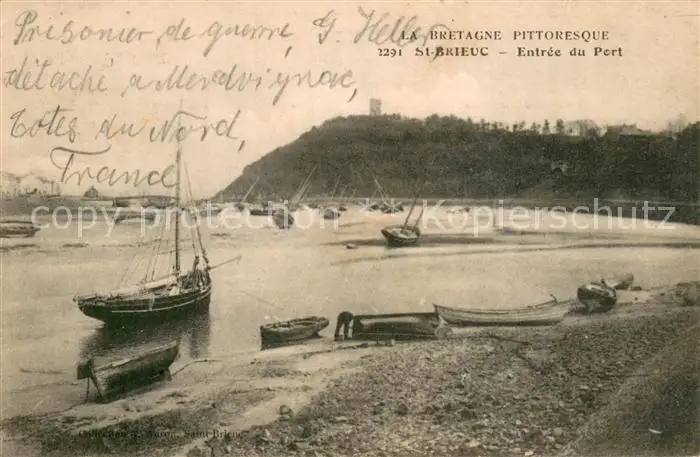 LA BRETAGNE PITTORESQUE
2291 St-BRIEUC - Entrée du Port
Prisonier de guerre, G. Heller
détaché a Merdrignac,
Cotes du Nord,
France
© Copyright Kopierschutz
Collection Saint-Brieuc